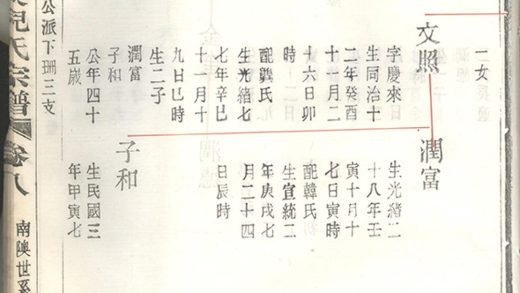 一女
文照
字慶來
生同治十
二年癸酉
十一月二
十六日卯
時
配龔氏
生光緒七
七年辛巳
十一月十
九日巳時
生二子
潤富
子和
公年四十
五歲
潤富
生光緒二
十八年壬
寅十月十
七日寅時
配韓氏
生宣統二
年庚戌七
月二十四
日辰時
子和
生民國三
年甲寅七
公派下珊三支
南陝世系
兒氏宗譜
卷八